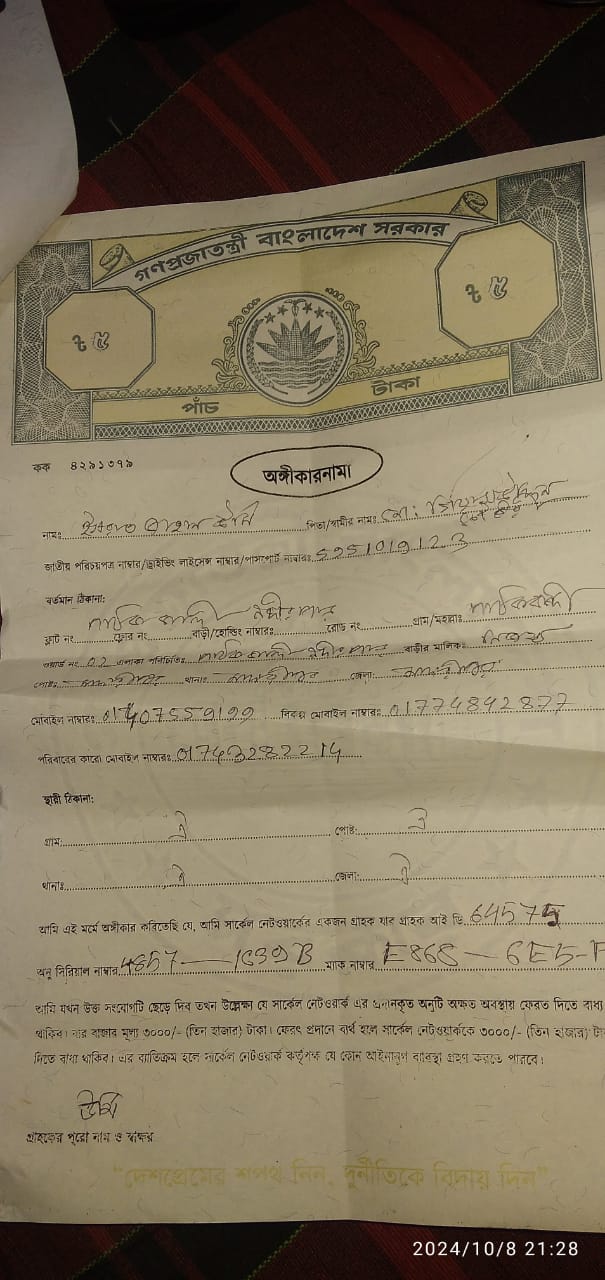 গণপ্রজাতন্ত্রী বাংলাদেশ সরকার
৳ ৫
৳ ৫
পাঁচ
টাকা
কক ৪২৯১৩৭৯
অঙ্গীকারনামা
নামঃ পিতা/স্বামীর নামঃ মো:
জাতীয় পরিচয়পত্র নাম্বার/ড্রাইভিং লাইসেন্স নাম্বার/পাসপোর্ট নাম্বারঃ 5951019123
বর্তমান ঠিকানা:
ফ্লাট নং ফ্লোর নং বাড়ী/হোল্ডিং নাম্বারঃ রোড নং গ্রাম/মহল্লাঃ
ওয়ার্ড নং 02 এলাকা পরিচিতিঃ বাড়ীর মালিক:
পোষ্টঃ থানাঃ জেলা
মোবাইল নাম্বারঃ 01407559199 বিকল্প মোবাইল নাম্বারঃ 01774892877
পরিবারের কারো মোবাইল নাম্বারঃ 01743282214
স্থায়ী ঠিকানা:
গ্রাম: ঐ পোষ্ট: ঐ
থানাঃ ঐ জেলা: ঐ
আমি এই মর্মে অঙ্গীকার করিতেছি যে, আমি সার্কেল নেটওয়ার্কের একজন গ্রাহক যার গ্রাহক আই ডি 64575
অনু সিরিয়াল নাম্বার 4857—1839B ম্যাক নাম্বার E868 — 6E5-F
আমি যখন উক্ত সংযোগটি ছেড়ে দিব তখন উল্লেক্ষ্য যে সার্কেল নেটওয়ার্ক এর প্রদানকৃত অনুটি অক্ষত অবস্থায় ফেরত দিতে বাধ্য
থাকিব। যার বাজার মূল্য ৩০০০/- (তিন হাজার) টাকা। ফেরৎ প্রদানে ব্যর্থ হলে সার্কেল নেটওয়ার্ককে ৩০০০/- (তিন হাজার) টা
দিতে বাধ্য থাকিব। এর ব্যতিক্রম হলে সার্কেল নেটওয়ার্ক কর্তৃপক্ষ যে কোন আইনানুগ ব্যবস্থা গ্রহণ করতে পারবে।
গ্রাহকের পুরো নাম ও স্বাক্ষর
"দেশপ্রেমের শপথ নিন, দুর্নীতিকে বিদায় দিন"
2024/10/8 21:28